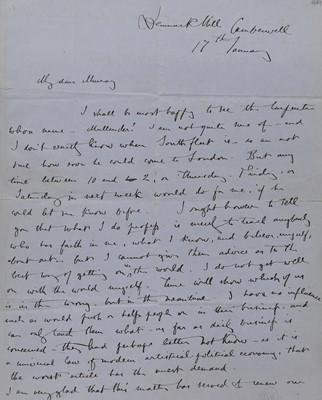 Denmark Hill Camberwell
17th January
My dear Murray
I shall be most happy to see the carpenter
whose name - I am not quite sure of - and
I don't exactly know where Southfleet is - so am not
sure how soon he could come to London. But any
time between 10 and 2, on Thursday, Friday, or
Saturday in next week would do for me, if he
could let me know before. I ought however to tell
you that what I do profess is merely to teach anybody
who has faith in me, what I know, and believe, myself,
about art - but I cannot give them advice as to the
best way of getting on in the world. I do not get well
on with the world myself. Time will show which of us
is in the wrong, but in the meantime I have no influence
such as would push or help people on in their business, and
can only tell them what - as far as daily business is
concerned - they had perhaps better not know - as it is
a universal law of modern artistical political economy, that
the worst article has the most demand.
I am very glad that this matter has served to renew our